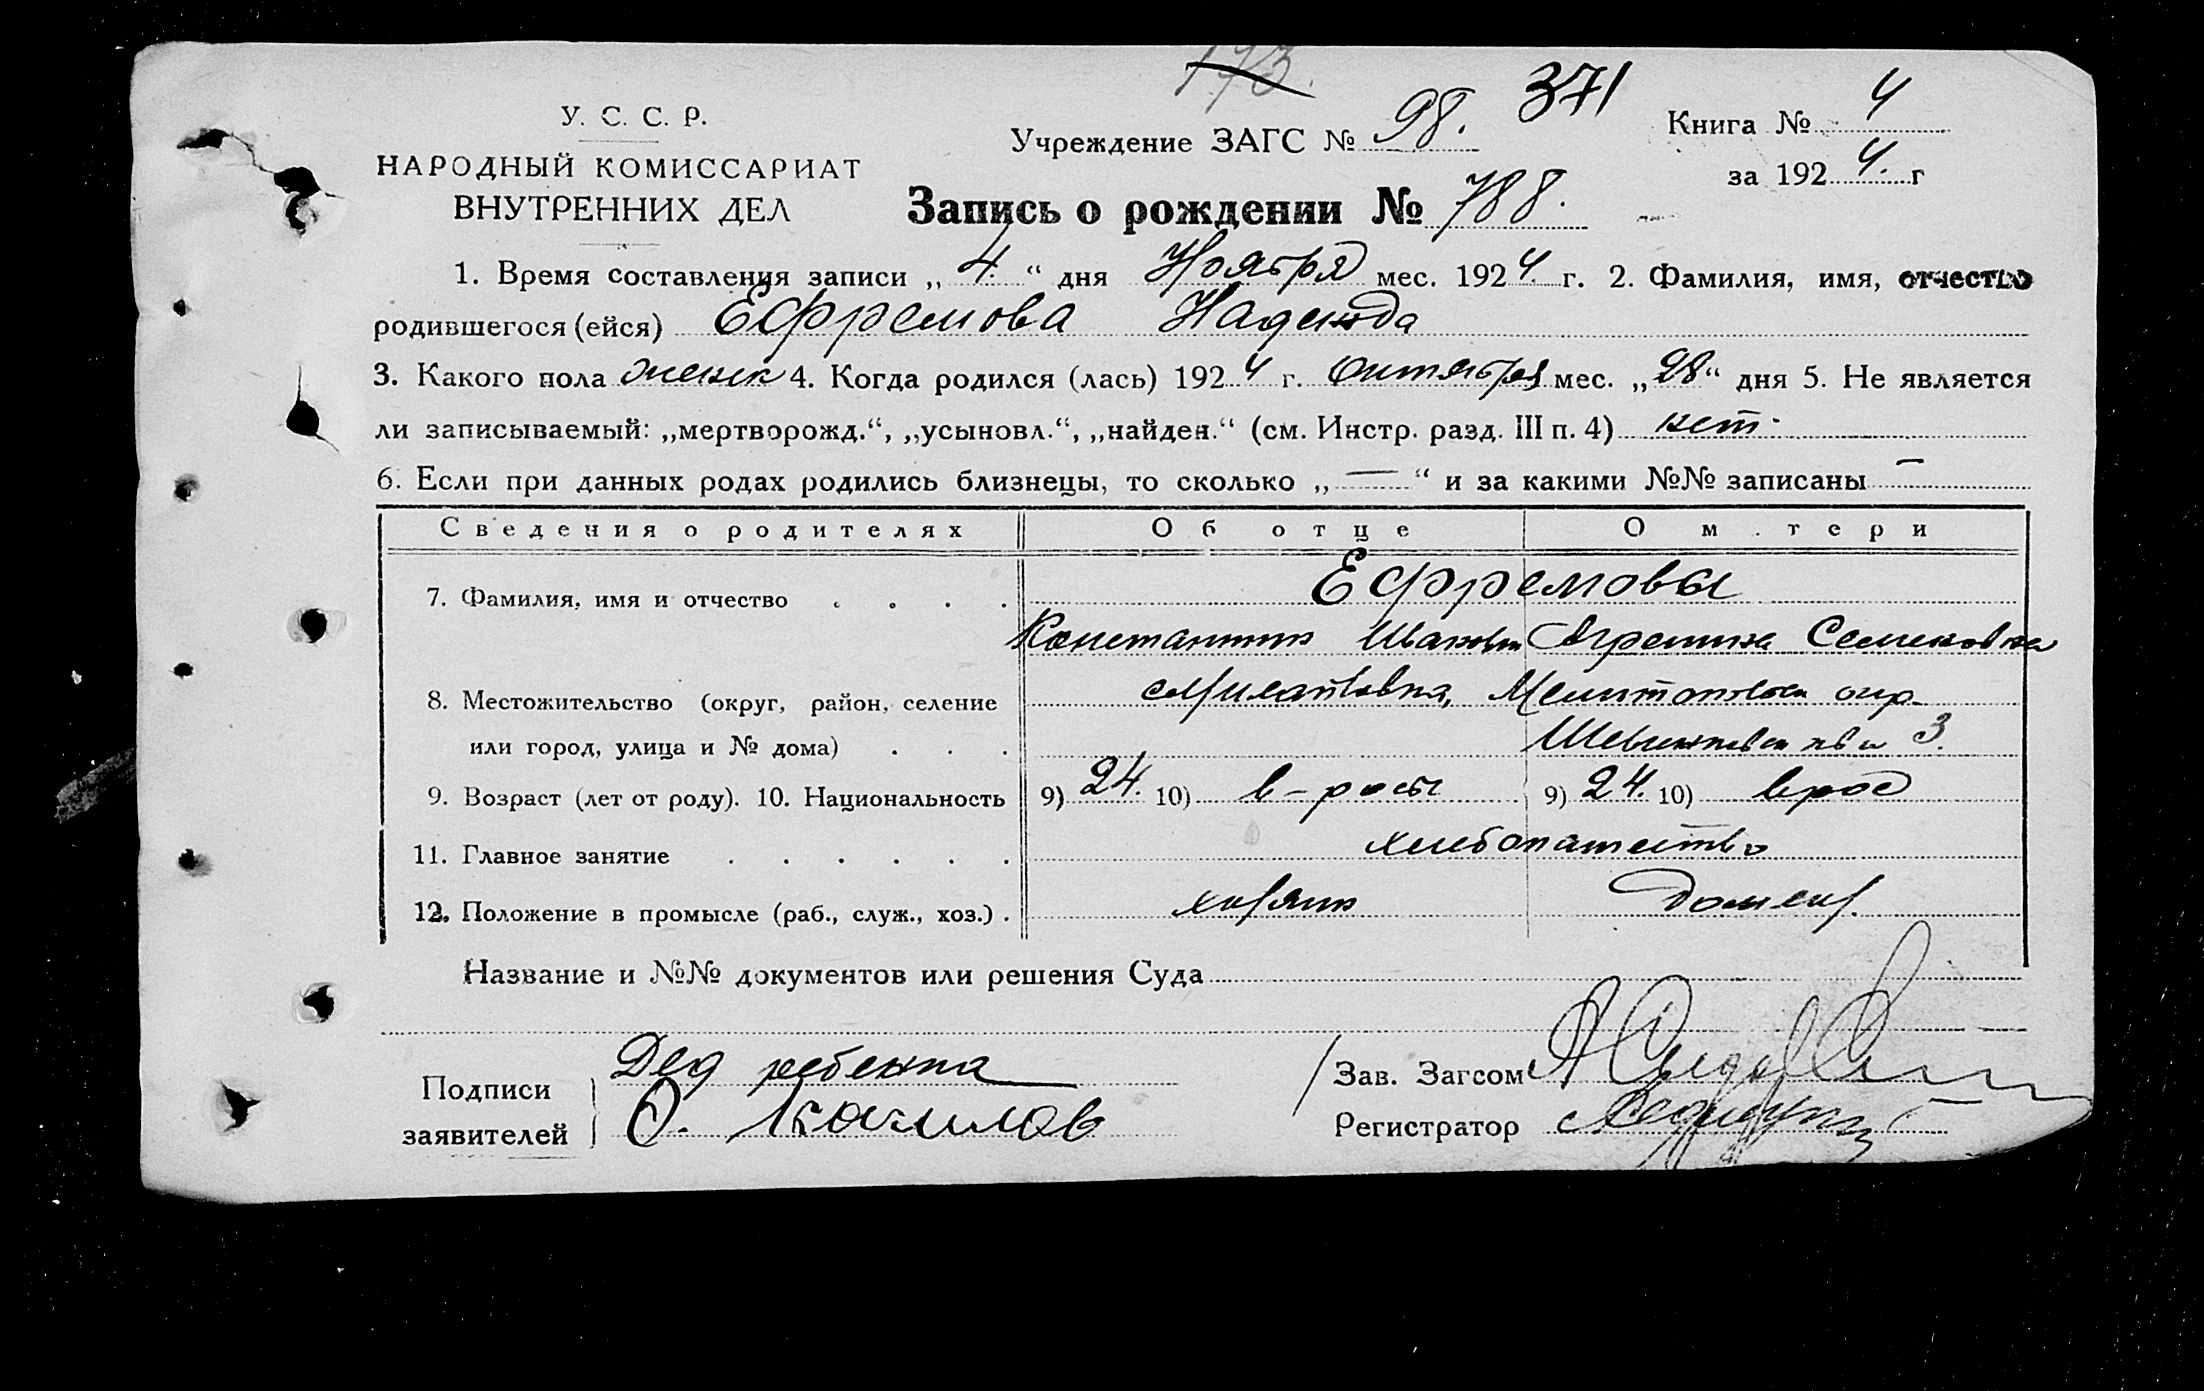 173.
У. С. С. Р.
НАРОДНЫЙ КОМИССАРИАТ
ВНУТРЕННИХ ДЕЛ
Учреждение ЗАГС № 98. 371
Книга № 4
за 1924. г
Запись о рождении № 788.
1. Время составления записи „4.“ дня Ноября мес. 1924. г. 2. Фамилия, имя, отчество
родившегося (ейся) Ефремова Надежда
3. Какого пола женск 4. Когда родился (лась) 1924 г. Октября мес. „28“ дня 5. Не является
ли записываемый: „мертворожд.“, „усыновл.“, „найден.“ (см. Инстр. разд. III п. 4) нет.
6. Если при данных родах родились близнецы, то сколько „—“ и за какими №№ записаны —
Сведения о родителях Об отце О м.тери
7. Фамилия, имя и отчество . . . . Ефремовы
Константин Иванов Агрепина Семеновна
8. Местожительство (округ, район, селение
или город, улица и № дома) . . . 3.
9. Возраст (лет от роду). 10. Национальность 9) 24. 10) в-росс 9) 24. 10) врос
11. Главное занятие . . . . . . хлебопашество
12. Положение в промысле (раб., служ., хоз.) . хозяин домхоз.
Название и №№ документов или решения Суда
Подписи
заявителей
Дед ребенка
Зав. Загсом
Регистратор